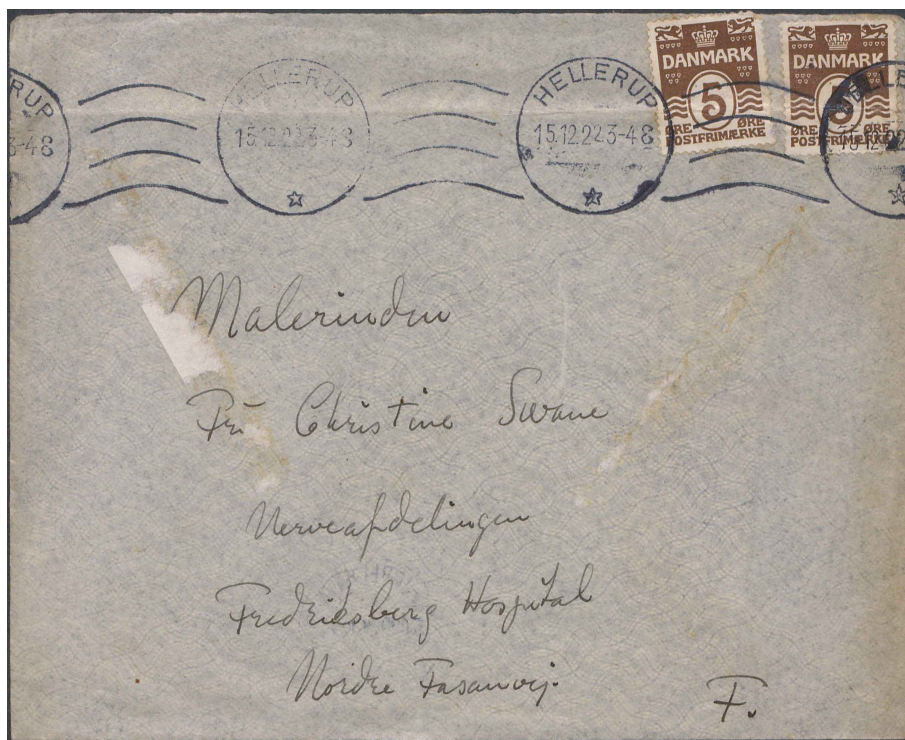 HELLERUP
15.12.22.3-48
HELLERUP
15.12.22.3-48
DANMARK
5
ØRE ØRE
POSTFRIMÆRKE
DANMARK
5
ØRE ØRE
POSTFRIMÆRKE
Malerinden
Fru Christine Swane
Nerveafdelingen
Fredriksberg Hospital
Nordre Fasanvej.
F.